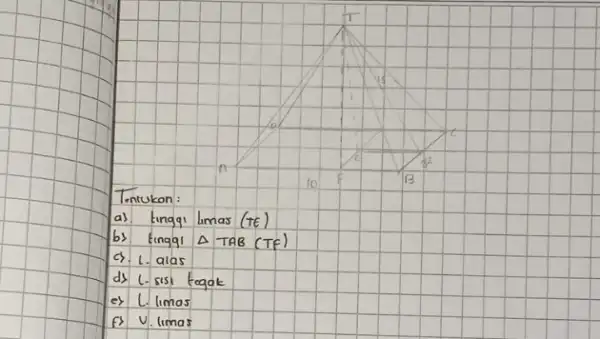 T
15
D
C
E
A
10
F
B
Tentukan :
a) tinggi limas (TE)
b) tinggi Δ TAB (TF)
c). L. alas
d) L. sisi tegak
e) L. limas
f) V. limas